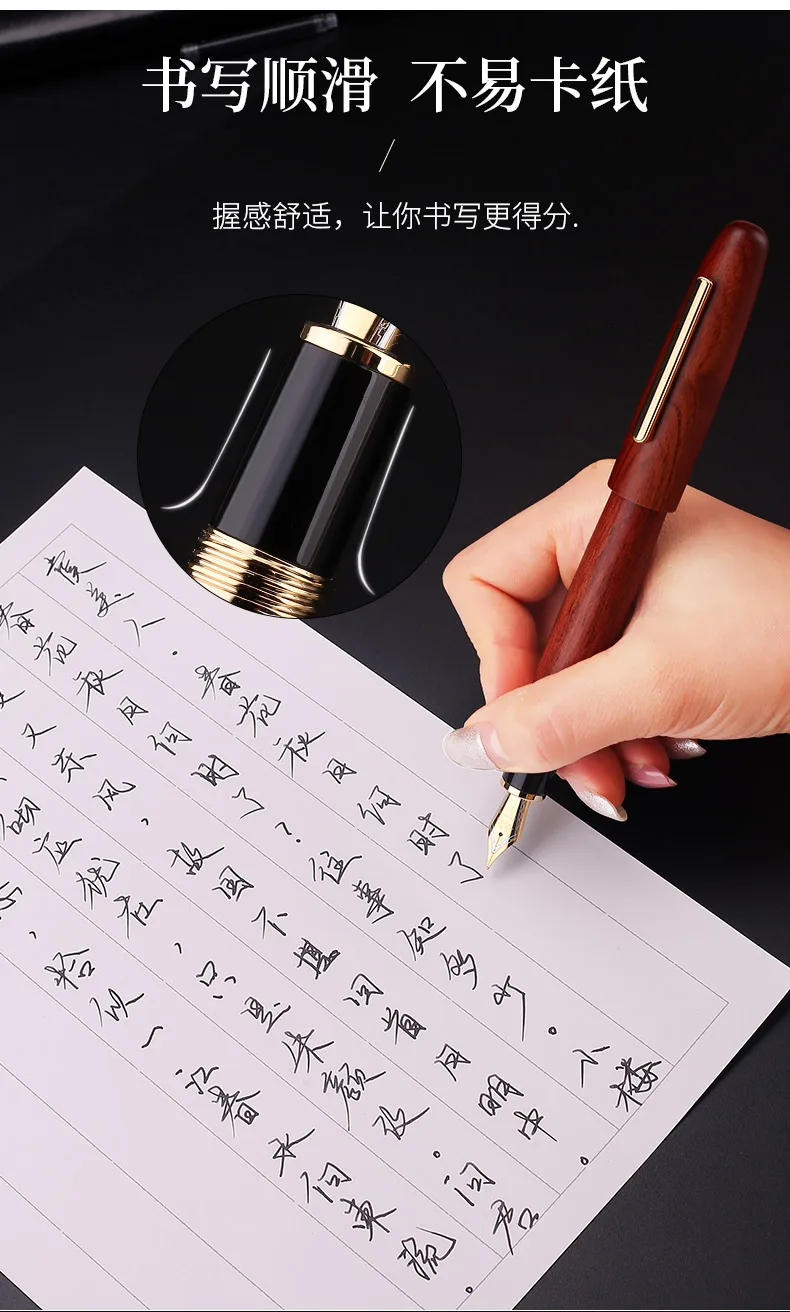 书写顺滑 不易卡纸
握感舒适，让你书写更得分.
虞美人.春花秋月何时了
春花秋月何时了？往事知多少。小楼
又东风，故国不堪回首月明中。
砌应犹在，只是朱颜改。问君
，恰似一江春水向東流。